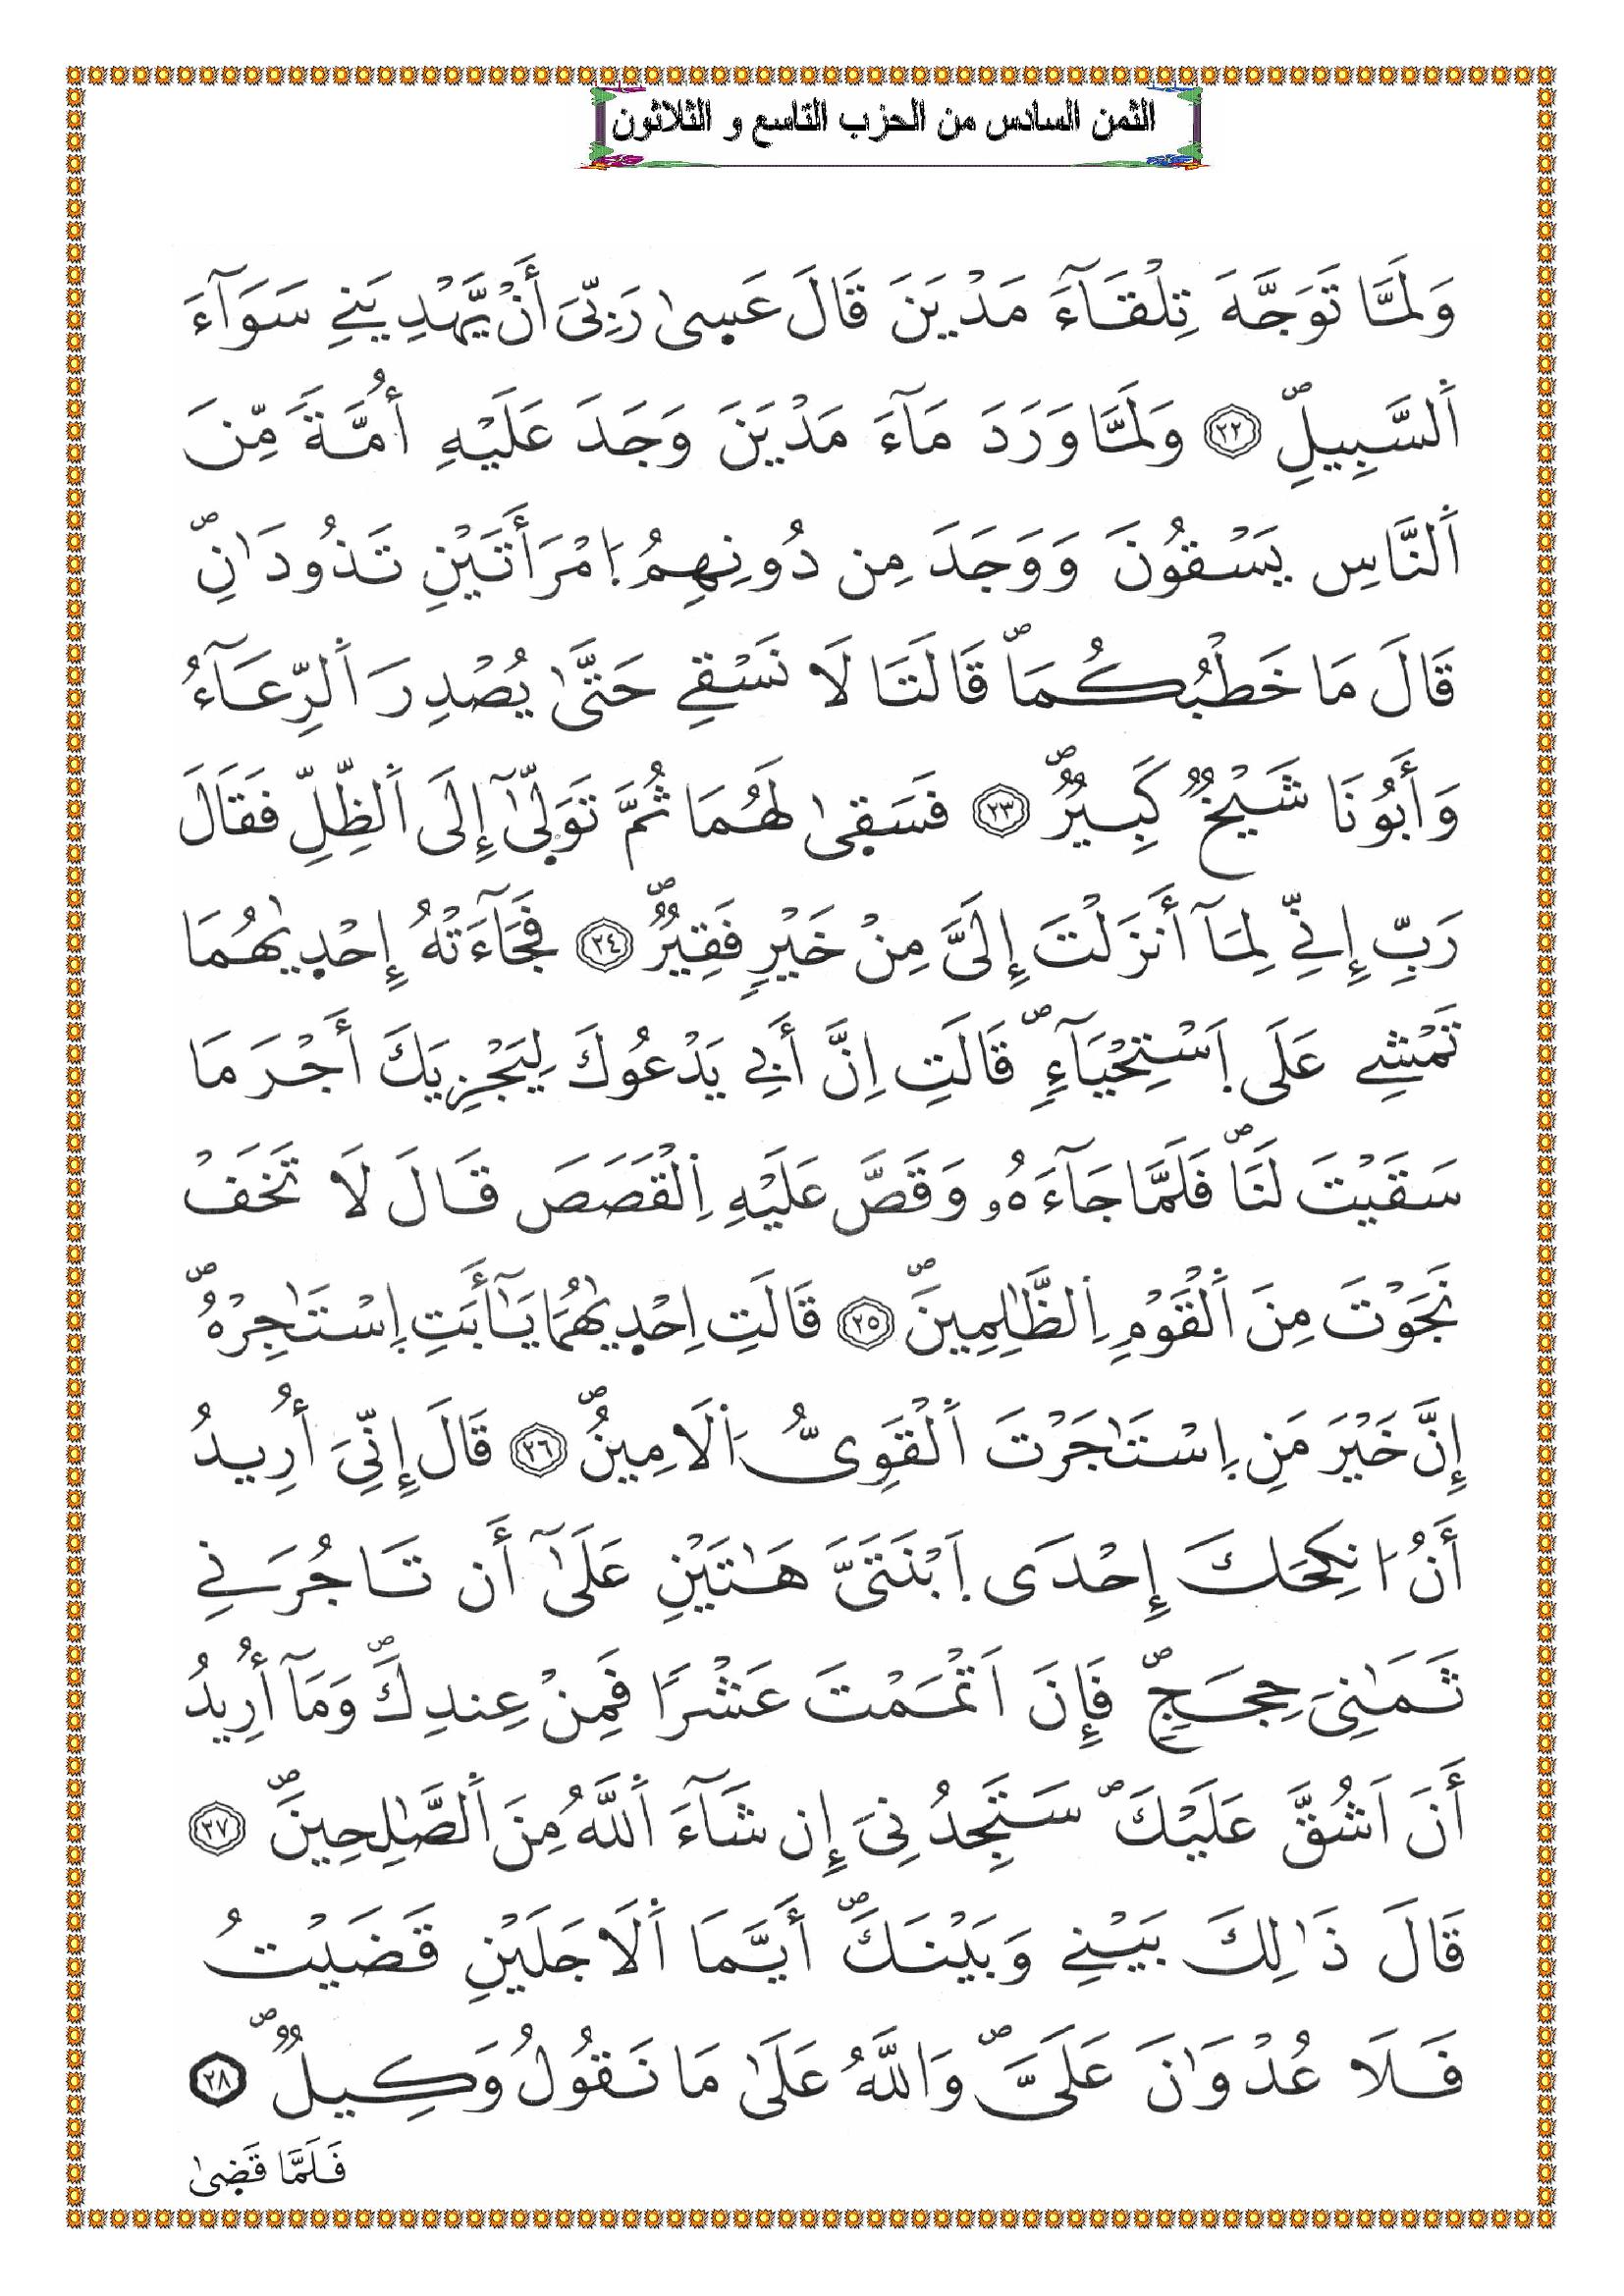 الثمن السادس من الحزب التاسع و الثلاثون
وَلَمَّا تَوَجَّهَ تِلْقَآءَ مَدْيَنَ قَالَ عَسٜىٰ رَبِّىَ أَنْ يَّهْدِيَنِے سَوَآءَ
اَ۬لسَّبِيلِۖ ٢٢ وَلَمَّا وَرَدَ مَآءَ مَدْيَنَ وَجَدَ عَلَيْهِ أُمَّةٗ مِّنَ
اَ۬لنَّاسِ يَسْقُونَ وَوَجَدَ مِن دُونِهِمُ اُ۪مْرَأَتَيْنِ تَذُودَٰنِۖ
قَالَ مَا خَطْبُكُمَاۖ قَالَتَا لَا نَسْقِے حَتَّىٰ يُصْدِرَ اَ۬لرِّعَآءُ
وَأَبُونَا شَيْخٞ كَبِيرٞۖ ٢٣ فَسَقٜىٰ لَهُمَا ثُمَّ تَوَلّٜىٰٓ إِلَى اَ۬لظِّلِّ فَقَالَ
رَبِّ إِنِّے لِمَآ أَنزَلْتَ إِلَىَّ مِنْ خَيْرٖ فَقِيرٞۖ ٢٤ فَجَآءَتْهُ إِحْدٜيٰهُمَا
تَمْشِے عَلَى اَ۪سْتِحْيَآءٖۖ قَالَتِ اِنَّ أَبِے يَدْعُوكَ لِيَجْزِيَكَ أَجْرَ مَا
سَقَيْتَ لَنَاۖ فَلَمَّا جَآءَهُۥ وَقَصَّ عَلَيْهِ اِ۬لْقَصَصَ قَالَ لَا تَخَفْ
نَجَوْتَ مِنَ اَ۬لْقَوْمِ اِ۬لظَّٰلِمِينَۖ ٢٥ قَالَتِ اِحْدٜيٰهُمَا يَٰٓأَبَتِ اِ۪سْتَٰجِرْهُۖ
إِنَّ خَيْرَ مَنِ اِ۪سْتَٰجَرْتَ اَ۬لْقَوِىُّ اُ۬لَامِينُۖ ٢٦ قَالَ إِنِّىَ أُرِيدُ
أَنُ ا۟نكِحَكَ إِحْدَى اَ۪بْنَتَىَّ هَٰتَيْنِ عَلَىٰٓ أَن تَاجُرَنِے
ثَمَٰنِىَ حِجَجٖۖ فَإِنَ اَتْمَمْتَ عَشْراٗ فَمِنْ عِندِكَۖ وَمَآ أُرِيدُ
أَنَ اَشُقَّ عَلَيْكَۖ سَتَجِدُنِىَ إِن شَآءَ اَ۬للَّهُ مِنَ اَ۬لصَّٰلِحِينَۖ ٢٧
قَالَ ذَٰلِكَ بَيْنِے وَبَيْنَكَۖ أَيَّمَا اَ۬لَاجَلَيْنِ قَضَيْتُ
فَلَا عُدْوَٰنَ عَلَىَّۖ وَاللَّهُ عَلَىٰ مَا نَقُولُ وَكِيلٞۖ ٢٨
فَلَمَّا قَضٜىٰ